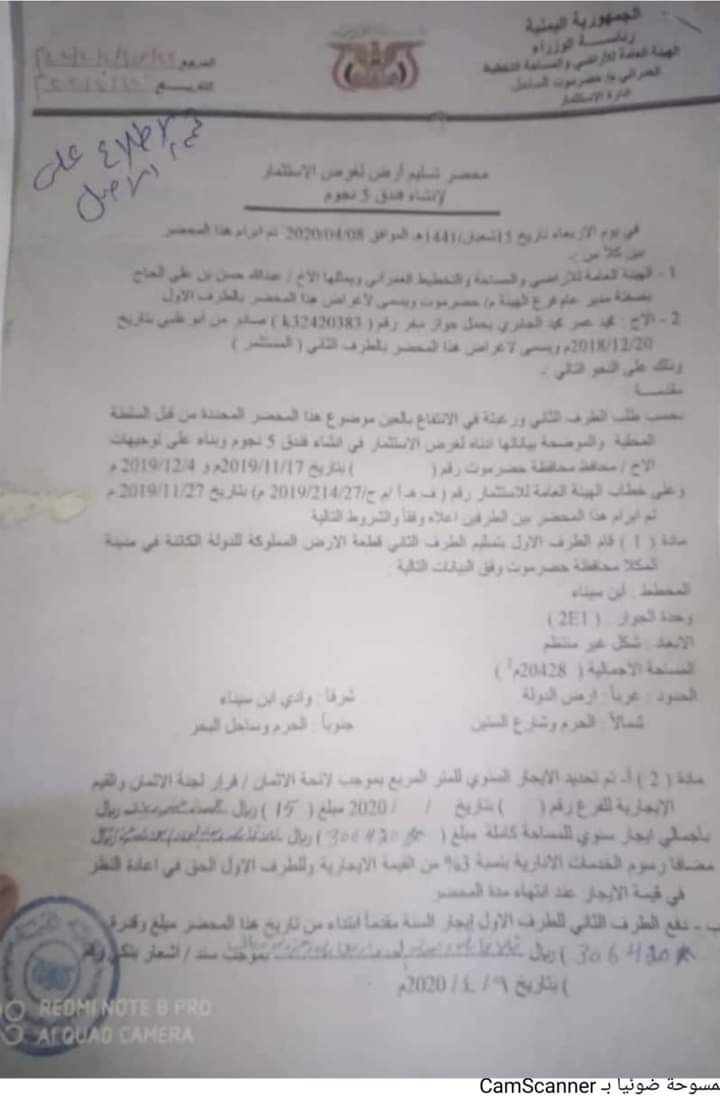 الجمهورية اليمنية
رئاسة الوزراء
الهيئة العامة للأراضي والمساحة والتخطيط
العمراني م/ حضرموت الساحل
إدارة الاستثمار
المرجع
التاريخ
تم الاطلاع على
الاصل
محضر تسليم أرض لغرض الاستثمار
لإنشاء فندق 5 نجوم
في يوم الاربعاء تاريخ 15شعبان/1441هـ الموافق 2020/04/08 تم ابرام هذا المحضر
بين كلاً من :-
1 - الهيئة العامة للأراضي والمساحة والتخطيط العمراني ويمثلها الأخ / عبدالله حسن بن علي الحاج
بصفته مدير عام فرع الهيئة م/ حضرموت ويسمى لأغراض هذا المحضر بالطرف الأول
2 - الاخ : محمد عمر محمد الجابري يحمل جواز سفر رقم ( k32420383 ) صادر من ابو ظبي بتاريخ
2018/12/20م ويسمى لاغراض هذا المحضر بالطرف الثاني ( المستثمر )
وذلك على النحو التالي :-
مقدمة
بحسب طلب الطرف الثاني ورغبته في الانتفاع بالعين موضوع هذا المحضر المحددة من قبل السلطة
المحلية والموضحة بياناتها ادناه لغرض الاستثمار في انشاء فندق 5 نجوم وبناء على توجيهات
الاخ / محافظ محافظة حضرموت رقم ( ) بتاريخ 2019/11/17م و 2019/12/4 م
وعلى خطاب الهيئة العامة للاستثمار رقم ( ف هـ أ /م ح/2019/214/27 م) بتاريخ 2019/11/27 م
تم ابرام هذا المحضر بين الطرفين اعلاه وفقاً والشروط التالية
مادة ( 1 ) قام الطرف الاول بتسليم الطرف الثاني قطعة الارض المملوكة للدولة الكائنة في مدينة
المكلا محافظة حضرموت وفق البيانات التالية
المخطط : ابن سيناء
وحدة الجوار : ( 2E1 )
الابعاد : شكل غير منتظم
المساحة الاجمالية ( 20428م2 )
الحدود : غرباً : ارض الدولة شرقا : وادي ابن سيناء
شمالاً : الحرم وشارع الستين جنوباً : الحرم وساحل البحر
مادة ( 2 ) أ- تم تحديد الايجار السنوي للمتر المربع بموجب لائحة الاثمان / قرار لجنة الاثمان والقيم
الايجارية للفرع رقم ( ) بتاريخ / / 2020 مبلغ ( 15 ) ريال ريال
بأجمالي ايجار سنوي للمساحة كاملة مبلغ ( 306420 ) ريال
مضافا رسوم الخدمات الادارية بنسبة 3% من القيمة الايجارية وللطرف الاول الحق في اعادة النظر
في قيمة الايجار عند انتهاء مدة المحضر
ب - دفع الطرف الثاني للطرف الاول إيجار السنة مقدماً ابتداء من تاريخ هذا المحضر مبلغ وقدرة
( 306420 ) ريال بموجب سند / اشعار بنكي رقم
( ) بتاريخ 9 / 4 / 2020م
REDMI NOTE 8 PRO
AI QUAD CAMERA
ممسوحة ضوئيا بـ CamScanner